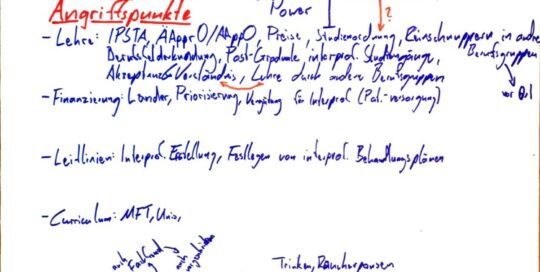 Angriffspunkte
Power
?
- Lehre: IPSTA, ÄApprO/AApprO, Preise, Studienordnung, Reinschnuppern in andere Berufsgruppen
Berufsfelderkundung, Post-Graduale interprof. Studiengänge,
vor Ort
Akzeptanz & Verständnis, Lehre durch andere Berufsgruppen
- Finanzierung: Länder, Priorisierung, Vergütung für Interprof (Pal.-versorgung)
- Leitlinien: Interprof. Erstellung, Festlegen von interprof. Behandlungsplänen
- Curriculum: MFT, Unis,
auch
auch
Trinken, Raucherpausen